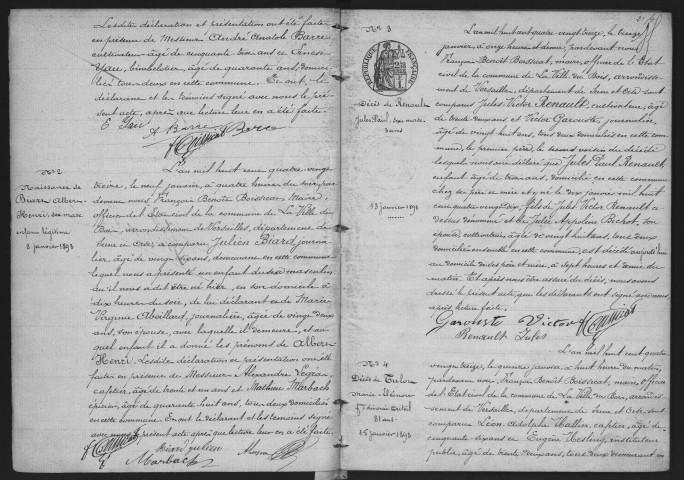 Lesdites déclaration et présentation ont été faites
en présence de Messieurs André Anatole Barre
cultivateur âgé de cinquante ans et Ernest
bimbelotier, âgé de quarante ans,
tous deux en cette commune. Et ont le
déclarant et les témoins signé avec nous le pré-
sent acte, après que lecture leur en a été faite.
A Barre
N° 2
Naissance de
Biard Albert
Henri, sexe masc
enfant légitime
8 janvier 1893
L'an mil huit cent quatre-vingt-
treize, le neuf janvier, à quatre heures du soir, par
devant nous François Benoît Boissicat Maire,
officier de l'État civil de la commune de La Ville du
Bois, arrondissement de Versailles, département de
Seine et Oise, a comparu Julien Biard, journa
lier, âgé de vingt ans, demeurant en cette commune
lequel nous a présenté un enfant du sexe masculin,
qu'il nous a dit être né hier, en son domicile à
dix heures du soir, de lui déclarant et de Marie
Virginie Aboillard, journalière, âgée de vingt-deux
ans, son épouse, avec laquelle il demeure, et au-
quel enfant il a donné les prénoms de Albert
Henri. Lesdites déclaration et présentation ont été
faites en présence de Messieurs Alexandre
âgé de trente et un ans et Mathieu Marbach
épicier, âgé de quarante huit ans, tous deux domiciliés
en cette commune. Et ont le déclarant et les témoins signé
avec nous le présent acte après que lecture leur en a été faite.
Biard julien
Marbach
N° 3
RÉPUBLIQUE FRANÇAISE
Décès de Renault
Jules Paul, sexe masc
3 ans
13 janvier 1893
L'an mil huit cent quatre vingt treize, le treize
janvier, à onze heures et demie, pardevant nous
François Benoît Boissicat, maire, officier de l'État
civil de la commune de La Ville du Bois, arrondisse-
ment de Versailles, département de Seine et Oise sont
comparus Jules Victor Renault, cultivateur, âgé
de trente ans, et Victor Garouste, journalier,
âgé de vingt huit ans, tous deux domiciliés en cette com-
mune, le premier père, le second voisin du décédé
lesquels nous ont déclaré que Jules Paul Renault
enfant âgé de trois ans, domicilié en cette commune
chez ses père et mère et y né le deux janvier mil huit
cent quatre-vingt-dix, fils de Jules Victor Renault ci
dessus dénommé et de Julie Appoline Bichot, son
épouse, cultivatrice, âgée de vingt huit ans, tous deux
domiciliés ensemble en cette commune, est décédé aujourd'hui
au domicile de ses père et mère, à sept heures et demie du
matin. Et après nous être assuré du décès, nous avons
dressé le présent acte que les déclarants ont signé avec nous
après lecture faite.
Garouste Victor
Renault Jules
N° 4
Décès de
Marie Éléonore
81 ans
15 janvier 1893
L'an mil huit cent quatre
vingt treize, le quinze janvier, à huit heures du matin,
pardevant nous, François Benoît Boissicat, maire, officier
de l'État civil de la commune de La Ville du Bois, arrondis-
sement de Versailles, département de Seine et Oise, sont
comparus Léon Adolphe âgé de
cinquante ans et Eugène instituteur
public, âgé de trente ans, tous deux domiciliés en